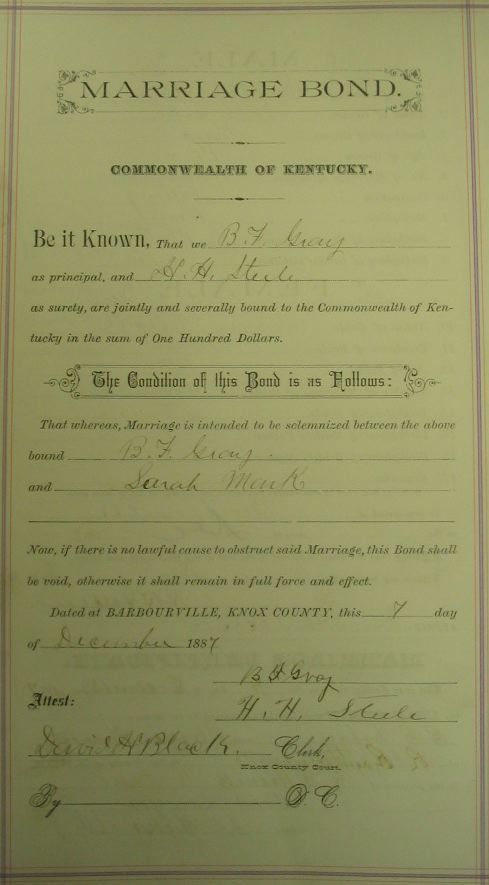 MARRIAGE BOND.
COMMONWEALTH OF KENTUCKY.
Be it Known, That we B. F. Gray
as principal, and H. H. Steele
as surety, are jointly and severally bound to the Commonwealth of Ken-
tucky in the sum of One Hundred Dollars.
The Condition of this Bond is as Follows:
That whereas, Marriage is intended to be solemnized between the above
bound B. F. Gray.
and Sarah Mark
Now, if there is no lawful cause to obstruct said Marriage, this Bond shall
be void, otherwise it shall remain in full force and effect.
Dated at BARBOURVILLE, KNOX COUNTY, this 7 day
of December 1887
B F Gray
Attest:
H. H. Steele
David H Black. Clerk,
Knox County Court.
By D. C.